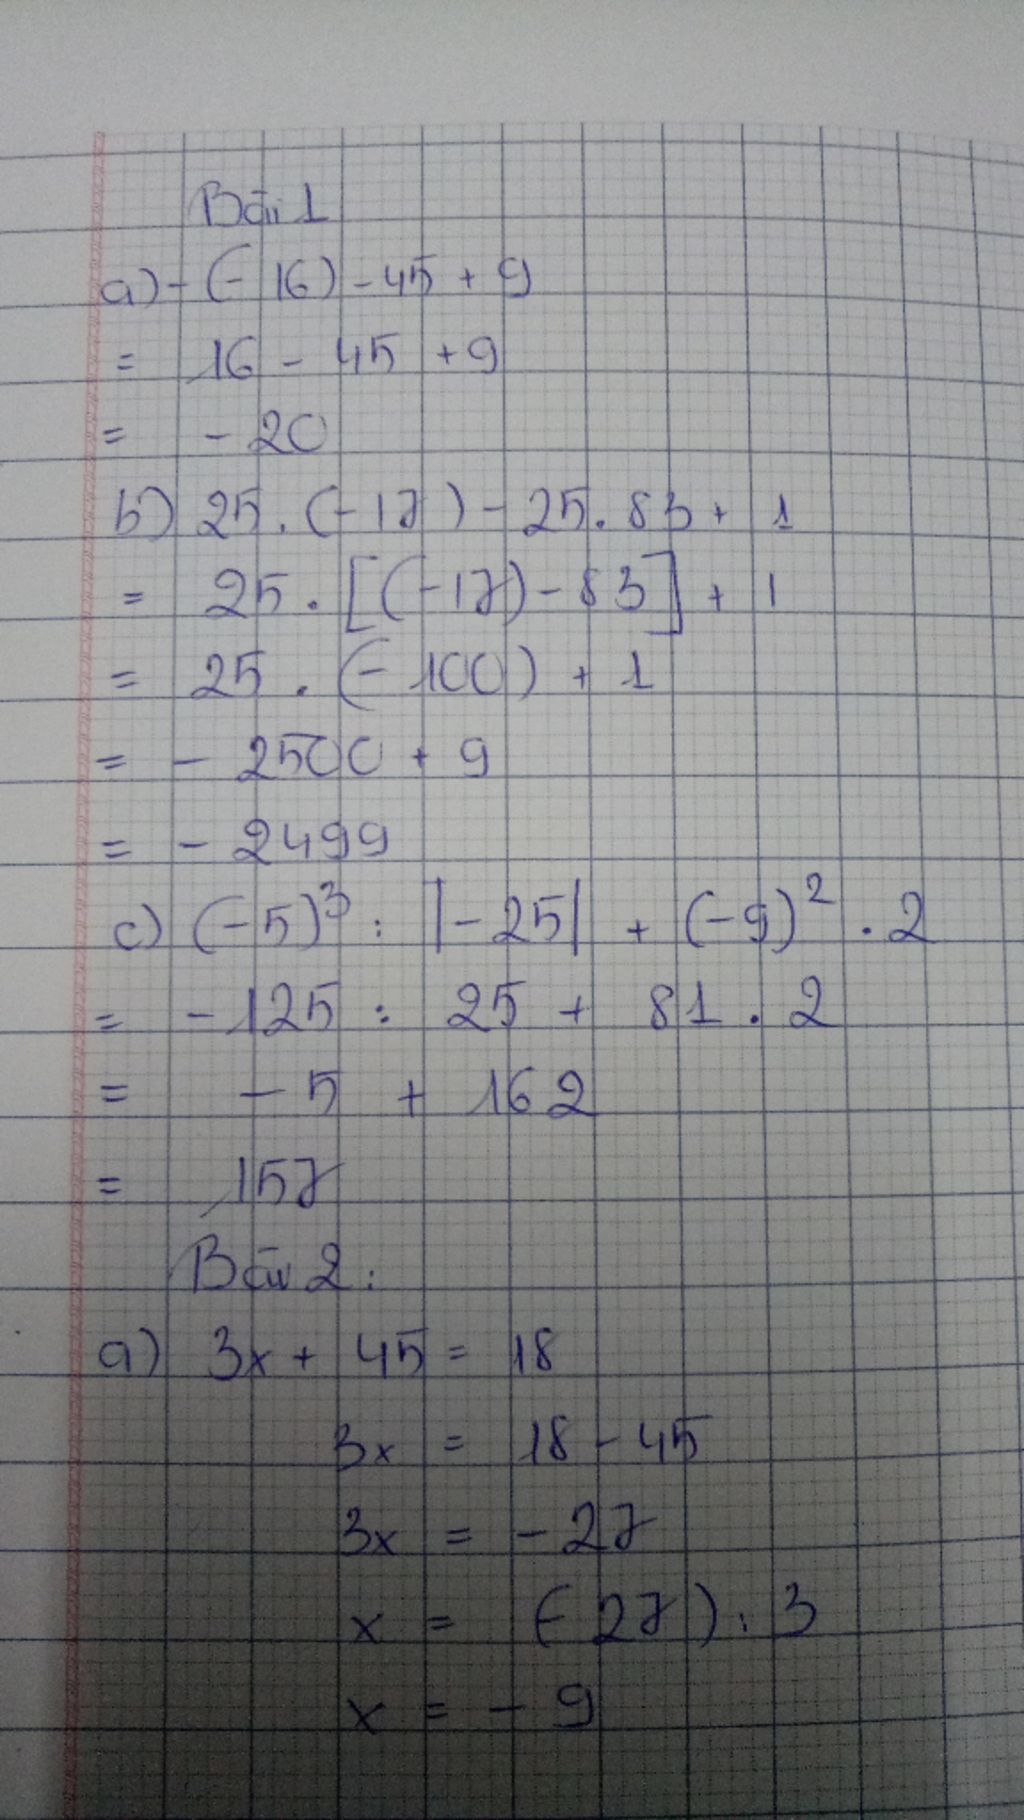 Bài 1
a) - (- 16) - 45 + 9
= 16 - 45 + 9
= - 20
b) 25 . (-17) - 25 . 83 + 1
= 25 . [(-17) - 83] + 1
= 25 . (- 100) + 1
= - 2500 + 9
= - 2499
c) (-5)³ : |-25| + (-9)² . 2
= -125 : 25 + 81 . 2
= - 5 + 162
= 157
Bài 2 :
a) 3x + 45 = 18
3x = 18 - 45
3x = - 27
x = (- 27) : 3
x = - 9